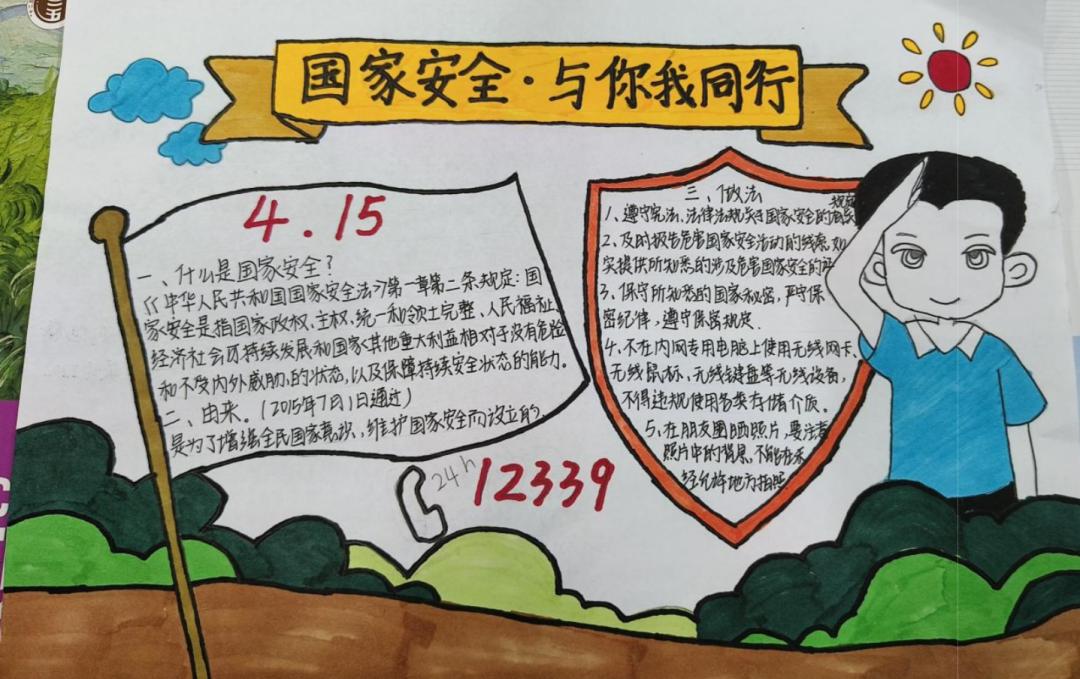 国家安全·与你我同行
4.15
一、什么是国家安全?
《中华人民共和国国家安全法》第一章第二条规定:国
家安全是指国家政权、主权、统一和领土完整、人民福祉、
经济社会可持续发展和国家其他重大利益相对于没有危险
和不受内外威胁,的状态,以及保障持续安全状态的能力。
二、由来。(2015年7月1日通过)
是为了增强全民国家意识,维护国家安全而设立的
24h
12339
三、做法
1、遵守宪法、法律法规关于国家安全的有关
规定
2、及时报告危害国家安全活动的线索,如
实提供所知悉的涉及危害国家安全的
3、保守所知悉的国家秘密,严守保
密纪律,遵守保密规定.
4、不在内网专用电脑上使用无线网卡、
无线鼠标、无线键盘等无线设备,
不得违规使用各类存储介质。
5、在朋友圈晒照片,要注意
照片中的背景,不能在未
经允许地方拍照